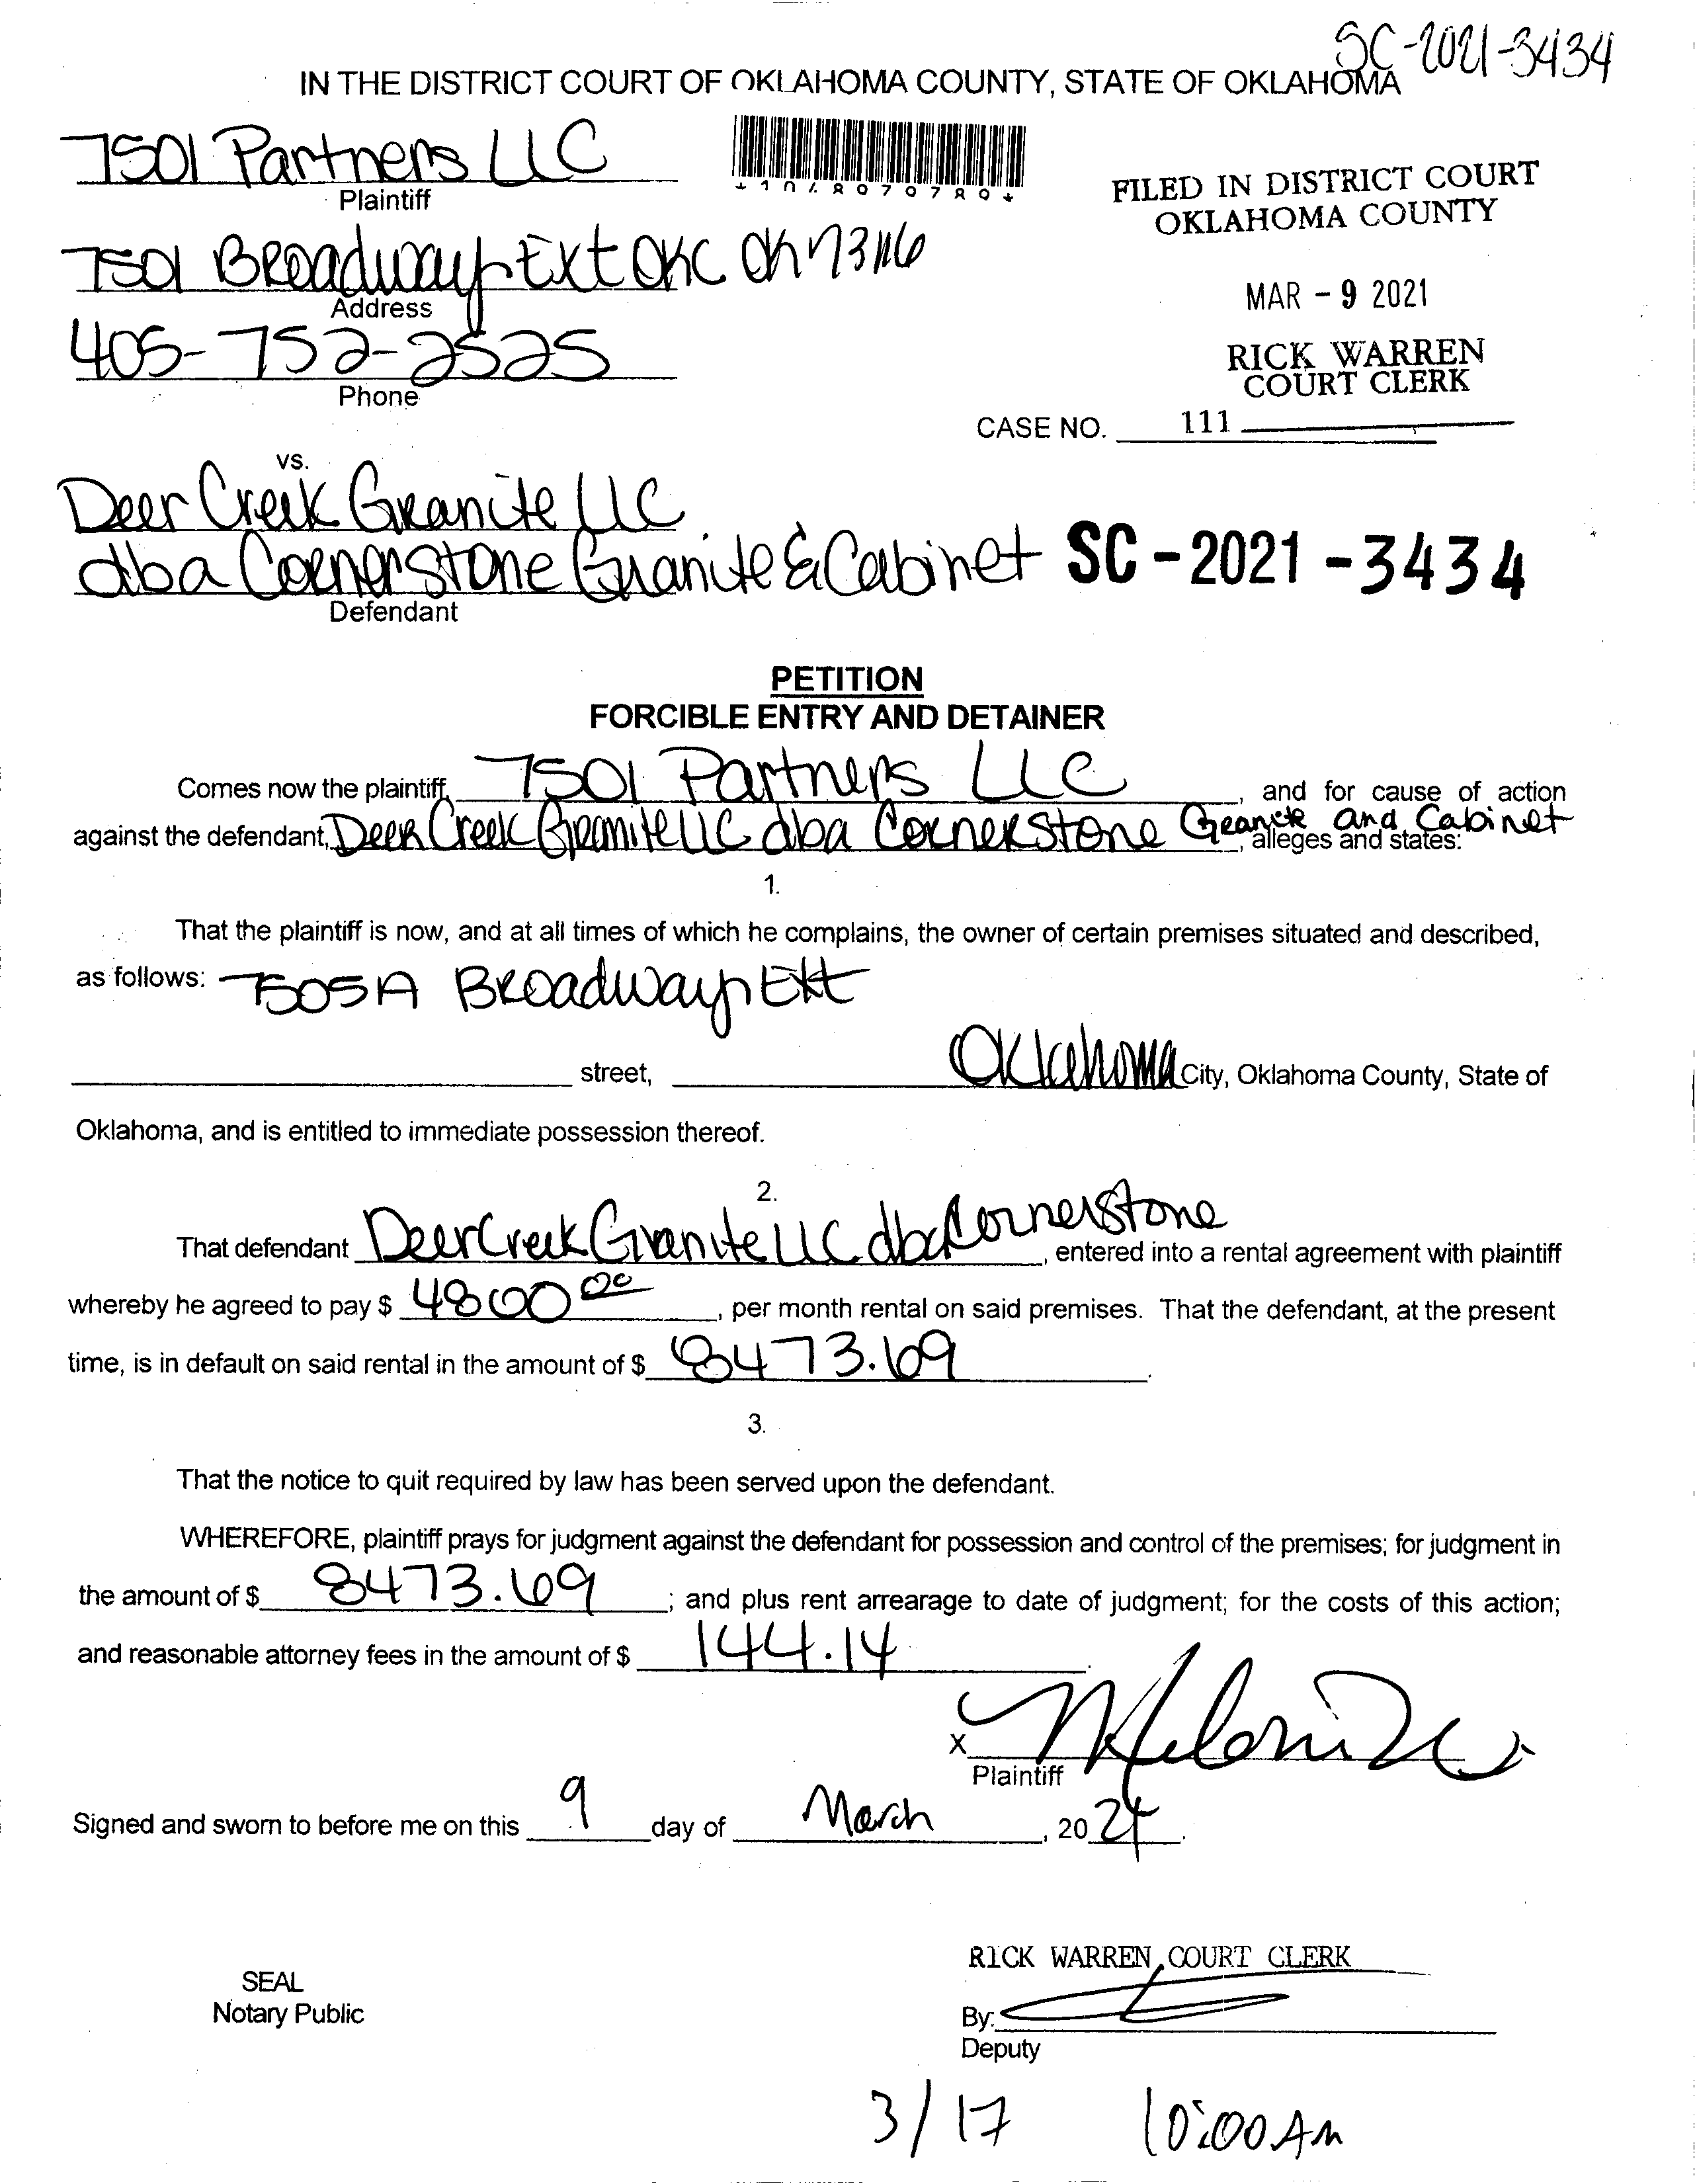 SC-2021-3434
IN THE DISTRICT COURT OF OKLAHOMA COUNTY, STATE OF OKLAHOMA
7501 Partners LLC
Plaintiff
*1048070789*
FILED IN DISTRICT COURT
OKLAHOMA COUNTY
7501 Broadway Ext OKC OK 73116
Address
MAR - 9 2021
405-752-2525
Phone
RICK WARREN
COURT CLERK
CASE NO. 111
vs.
Deer Creek Granite LLC
dba Cornerstone Granite & Cabinet
SC - 2021 - 3434
Defendant
PETITION
FORCIBLE ENTRY AND DETAINER
Comes now the plaintiff, 7501 Partners LLC, and for cause of action
against the defendant, Deer Creek Granite LLC dba Cornerstone Granite and Cabinet, alleges and states:
1.
That the plaintiff is now, and at all times of which he complains, the owner of certain premises situated and described,
as follows: 7505A Broadway Ext
street, Oklahoma City, Oklahoma County, State of
Oklahoma, and is entitled to immediate possession thereof.
2.
That defendant Deer Creek Granite LLC dba Cornerstone, entered into a rental agreement with plaintiff
whereby he agreed to pay $ 4800 00, per month rental on said premises. That the defendant, at the present
time, is in default on said rental in the amount of $ 8473.69.
3.
That the notice to quit required by law has been served upon the defendant.
WHEREFORE, plaintiff prays for judgment against the defendant for possession and control of the premises; for judgment in
the amount of $ 8473.69; and plus rent arrearage to date of judgment; for the costs of this action;
and reasonable attorney fees in the amount of $ 144.14.
X
Plaintiff
Signed and sworn to before me on this 9 day of March, 2021.
RICK WARREN, COURT CLERK
SEAL
Notary Public
By:
Deputy
3/17 10:00 AM